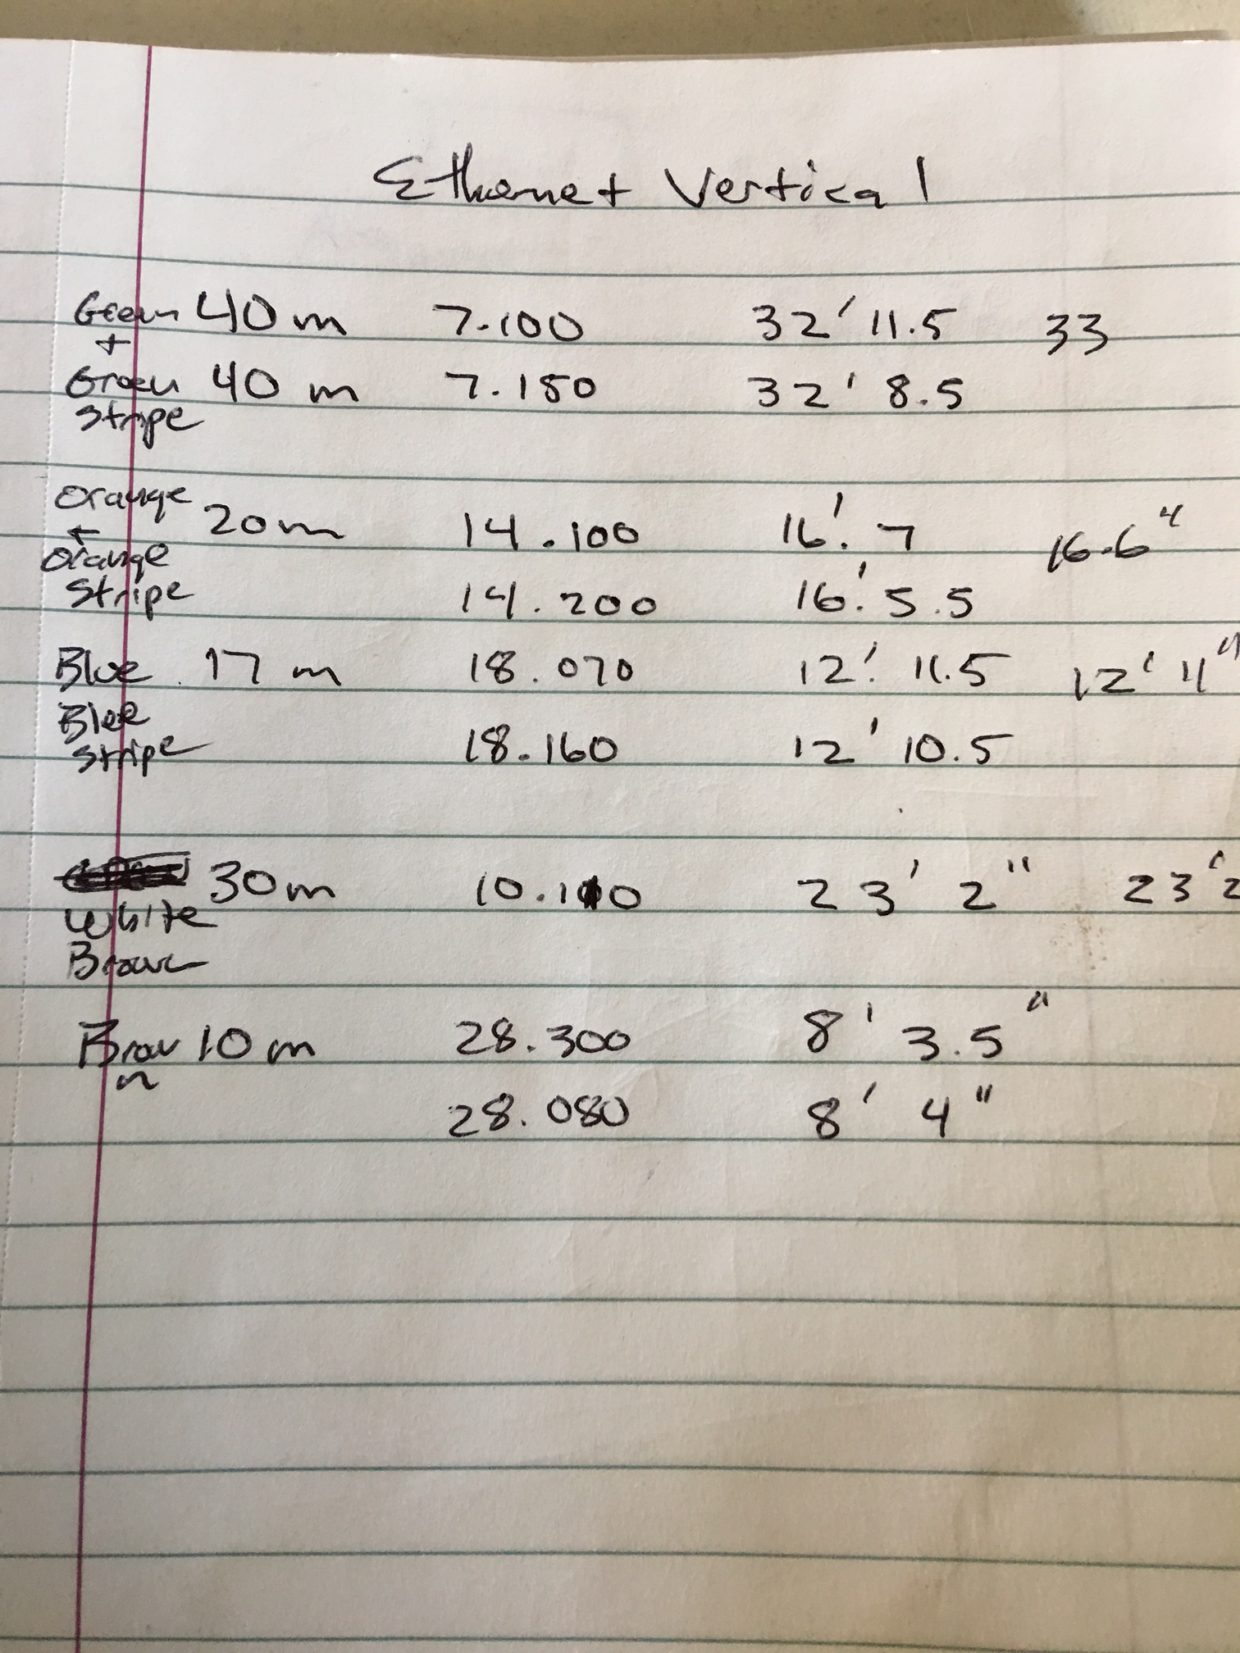 Ethernet Vertical
Green 40 m 7.100 32' 11.5 33
+
Green 40 m 7.150 32' 8.5
Stripe
Orange
+ 20 m 14.100 16'. 7 16.6"
Orange
Stripe 14.200 16'. 5.5
Blue 17 m 18.070 12'. 11.5 12' 11"
Blue
Stripe 18.160 12' 10.5
30 m 10.110 23' 2" 23' 2
White
Brown
Brow 10 m 28.300 8' 3.5"
n
28.080 8' 4"